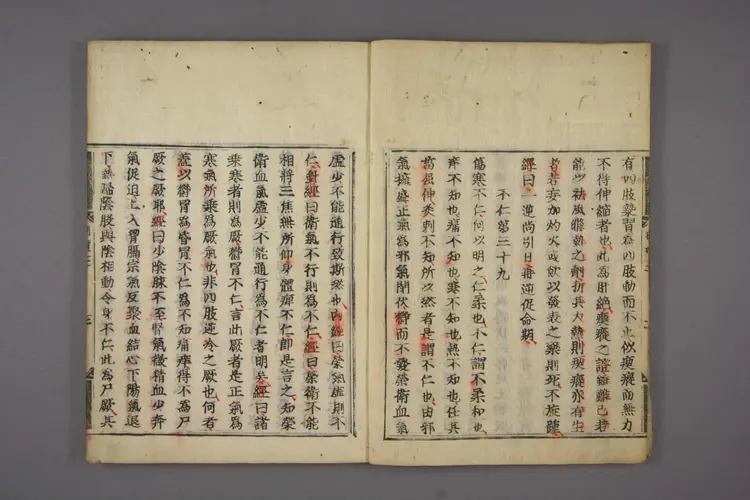 有四肢漐習爲四肢動而不止似瘈瘲而無力
不得伸縮者也此爲肝絶瘈瘲之證雖難已若
能以祛風滌熱之劑折其大熱則瘈瘲亦有生
者若妄加灼火或飮以發表之藥則死不旋踵
經曰一逆尚引日再逆促命期
不仁第三十九
傷寒不仁何以明之仁柔也不仁謂不柔和也
痒不知也痛不知也寒不知也熱不知也任其
屈伸灸刺不知所以然者是謂不仁也由邪
氣擁盛正氣爲邪氣閉伏欝而不發榮衛血氣
虚少不能通行致斯然也内經曰榮氣虚則不
仁針經曰衛氣不行則爲不仁經曰榮衛不能
相將三焦無所仰身體痺不仁即是言之知榮
衛血氣虚少不能通行爲不仁者明矣經曰諸
乘寒者則爲厥欝冒不仁言此厥者是正氣爲
寒氣所乘爲厥氣也非四肢逆冷之厥也何者
蓋以欝冒爲昏冒不仁爲不知痛痒得不爲尸
厥之厥耶經曰少陰脉不至腎氣微精血少奔
氣促迫上入胃膈宗氣反聚血結心下陽氣退
下熱歸陰股與陰相動令身不仁此爲尸厥其